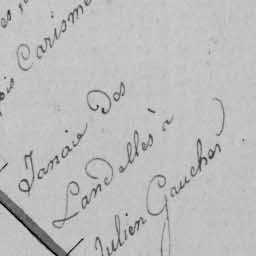 Carisme
Janaie Des
Landelles à
Julien Gaucher)